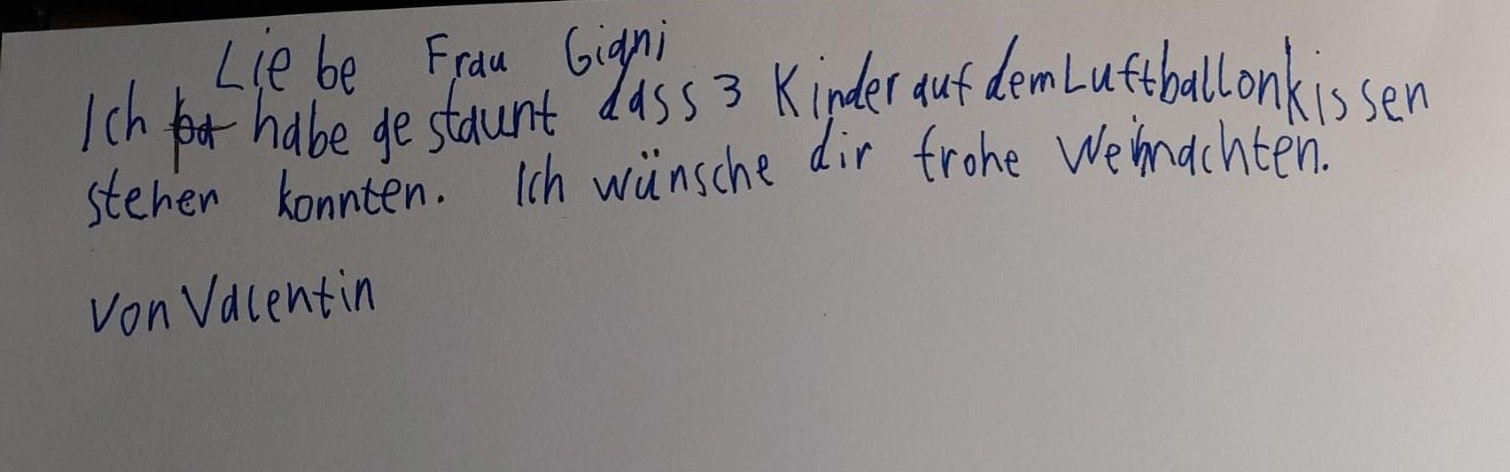 Liebe Frau Giani
Ich habe gestaunt dass 3 Kinder auf dem Luftballonkissen
stehen konnten. Ich wünsche dir frohe Weihnachten.
von Valentin